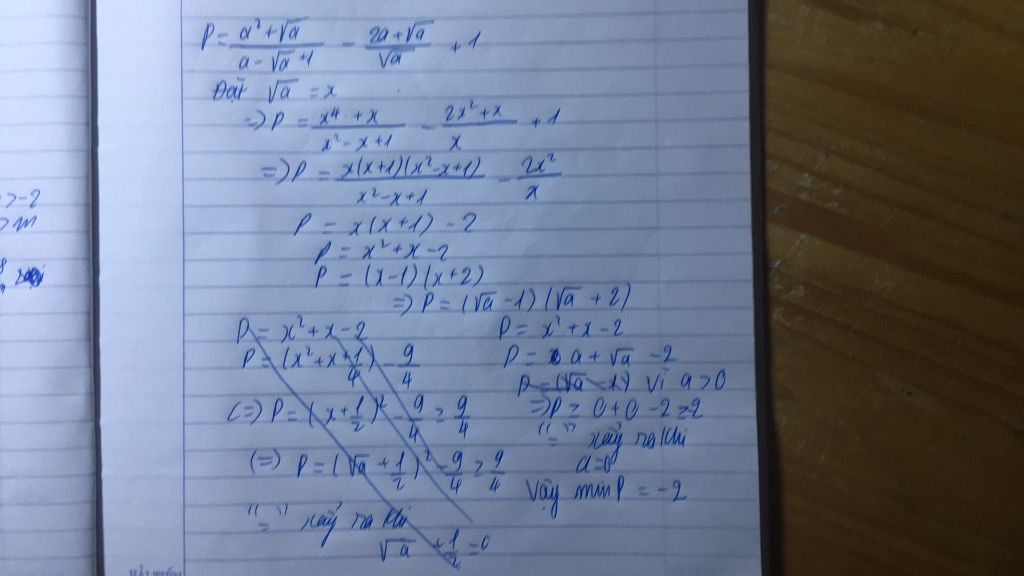 P = \frac{a^2 + \sqrt{a}}{a - \sqrt{a} + 1} - \frac{2a + \sqrt{a}}{\sqrt{a}} + 1
Đặt \sqrt{a} = x
=> P = \frac{x^4 + x}{x^2 - x + 1} - \frac{2x^2 + x}{x} + 1
=> P = \frac{x(x+1)(x^2 - x + 1)}{x^2 - x + 1} - \frac{2x^2}{x}
P = x(x+1) - 2
P = x^2 + x - 2
P = (x-1)(x+2)
=> P = (\sqrt{a} - 1)(\sqrt{a} + 2)
P = x^2 + x - 2
P = (x^2 + x + \frac{1}{4}) - \frac{9}{4}
(=) P = (x + \frac{1}{2})^2 - \frac{9}{4} ≥ \frac{9}{4}
(=) P = (\sqrt{a} + \frac{1}{2})^2 - \frac{9}{4} ≥ \frac{9}{4}
"=" xảy ra khi
\sqrt{a} + \frac{1}{2} = 0
P = x^2 + x - 2
P = a + \sqrt{a} - 2
vì a > 0
=> P ≥ 0 + 0 - 2 = 2
"=" xảy ra khi
a = 0
Vậy min P = -2
> -2
> m